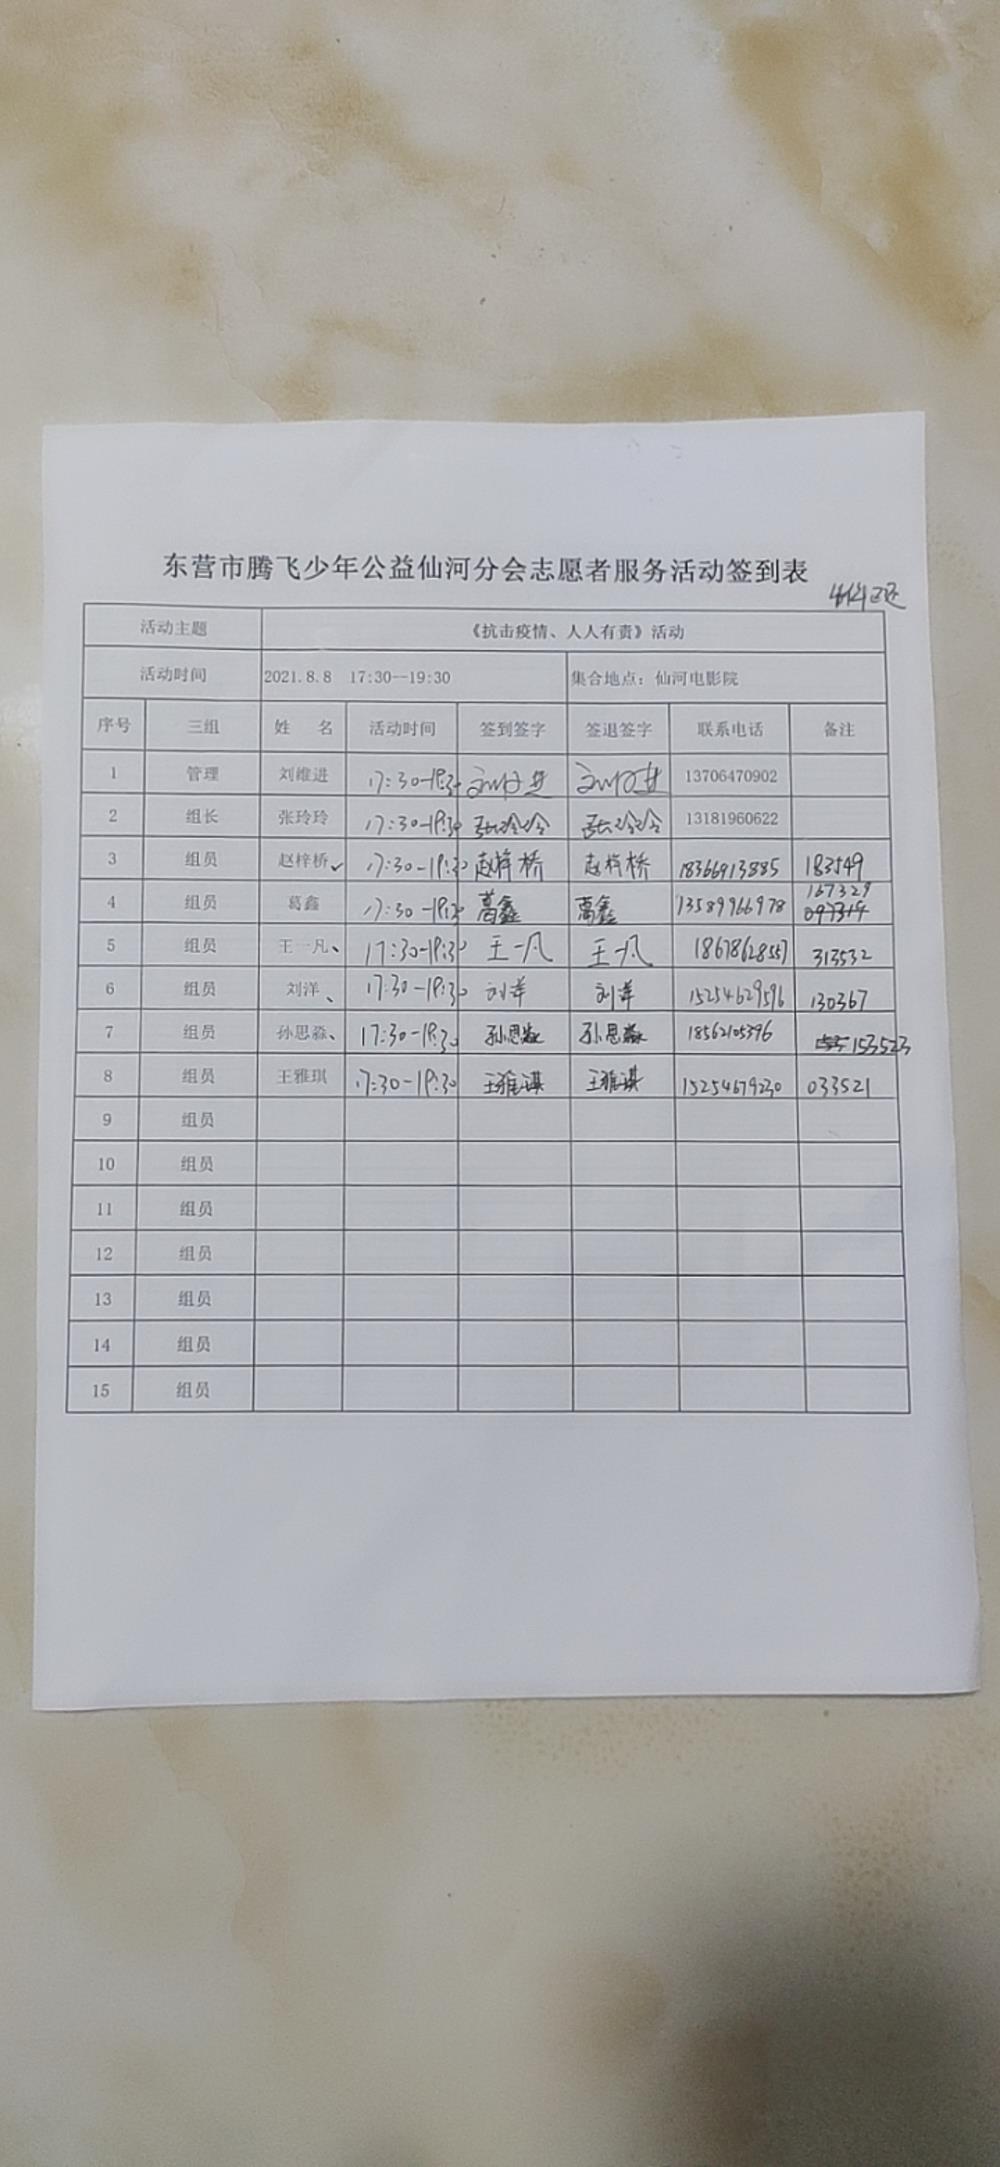 东营市腾飞少年公益仙河分会志愿者服务活动签到表
活动主题 《抗击疫情、人人有责》活动
活动时间 2021.8.8 17:30--19:30 集合地点：仙河电影院
序号 三组 姓 名 活动时间 签到签字 签退签字 联系电话 备注
1 管理 刘维进 17:30-19:30 刘维进 刘维进 13706470902
2 组长 张玲玲 17:30-19:30 张玲玲 张玲玲 13181960622
3 组员 赵梓桥 17:30-19:30 赵梓桥 赵梓桥 18366913885 183549
4 组员 葛鑫 17:30-19:30 葛鑫 葛鑫 13589966978 167329
5 组员 王一凡 17:30-19:30 王一凡 王一凡 18678628557 313532
6 组员 刘洋 17:30-19:30 刘洋 刘洋 15254629596 130367
7 组员 孙思淼 17:30-19:30 孙思淼 孙思淼 18562105396 153523
8 组员 王雅琪 17:30-19:30 王雅琪 王雅琪 15254679230 033521
9 组员
10 组员
11 组员
12 组员
13 组员
14 组员
15 组员